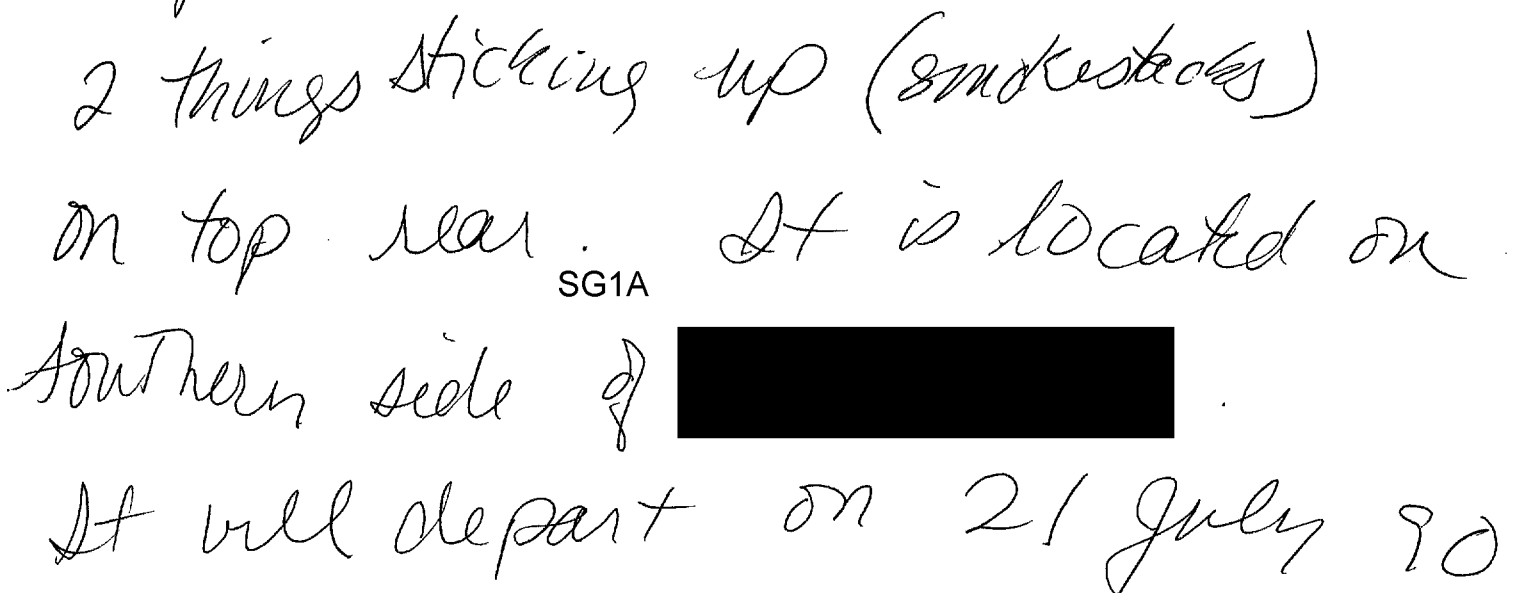 2 things sticking up (smokestacks)
on top rear. It is located on
SG1A
southern side of
It will depart on 21 July 90